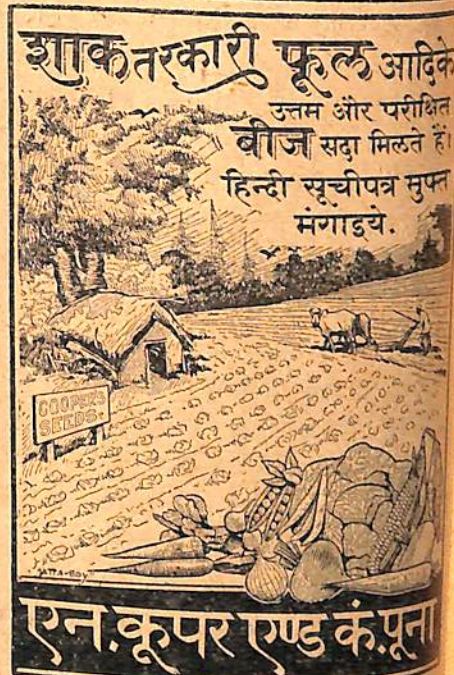 शाक तरकारी फूल आदिके
उत्तम और परीक्षित
बीज सदा मिलते हैं।
हिन्दी सूचीपत्र मुफ्त
मंगाइये.
COOPER'S
SEEDS.
एन. कूपर एण्ड कं. पूना